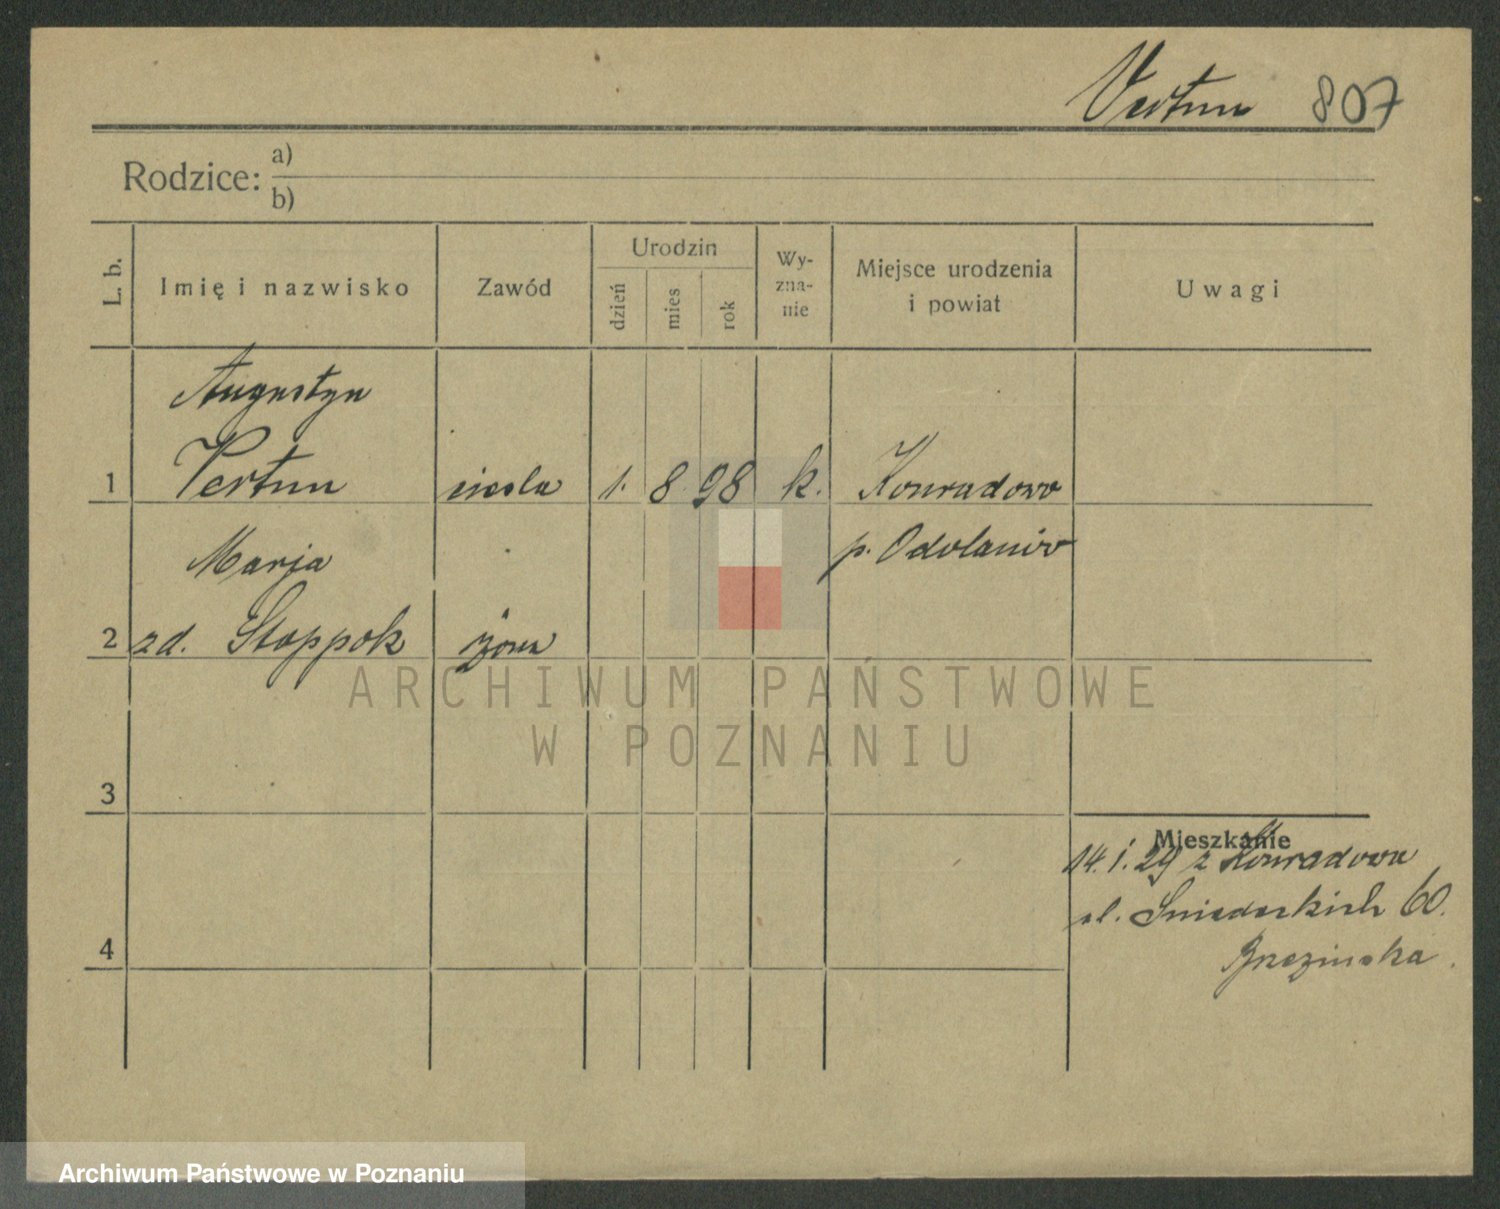 Vertun 807
Rodzice: a)
b)
L. b.
Imię i nazwisko
Zawód
Urodzin
dzień
mies
rok
Wy-
zna-
nie
Miejsce urodzenia
i powiat
Uwagi
Augustyn
1 Vertun ciesla 1. 8. 98 k. Konradowo
p. Odolanów
Marja
2 zd. Stoppok żona
3
4
Mieszkanie
14. 1. 29 z Konradowa
ul. Sniadeckich 60.
Brezinska.
ARCHIWUM PAŃSTWOWE
W POZNANIU
Archiwum Państwowe w Poznaniu